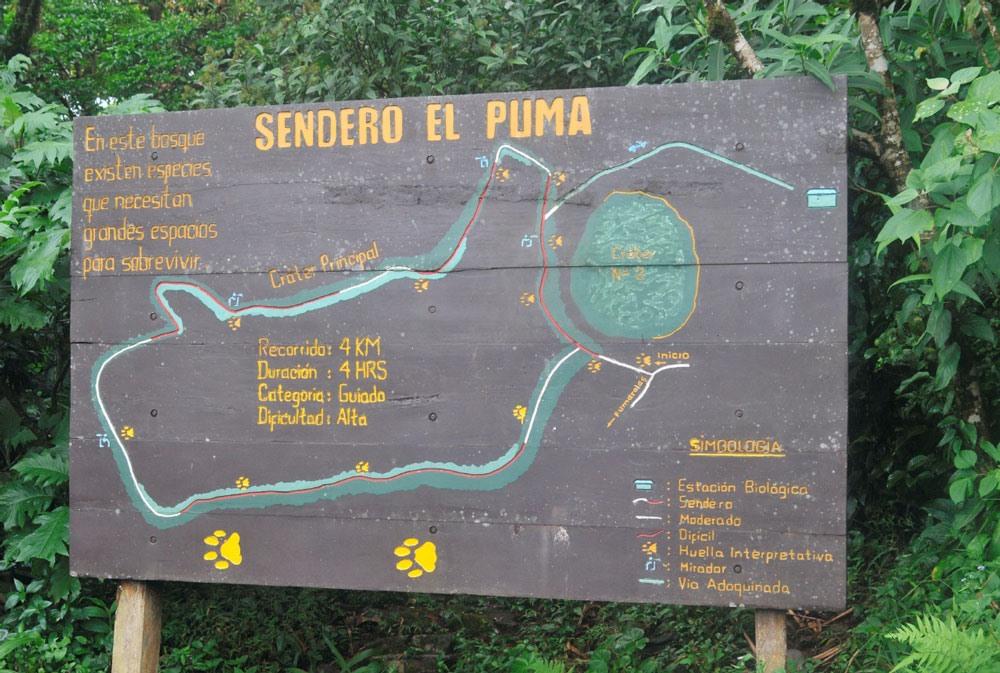 SENDERO EL PUMA
En este bosque
existen especies
que necesitan
grandes espacios
para sobrevivir.
Cráter Principal
Cráter
Nº 2
Recorrido: 4 KM
Duración : 4 HRS
Categoria: Guiado
Dificultad: Alta
Inicio
Fumarolas
SIMBOLOGÍA
: Estación Biológica
: Sendero
: Moderado
: Difícil
: Huella Interpretativa
: Mirador
: Via Adoquinada